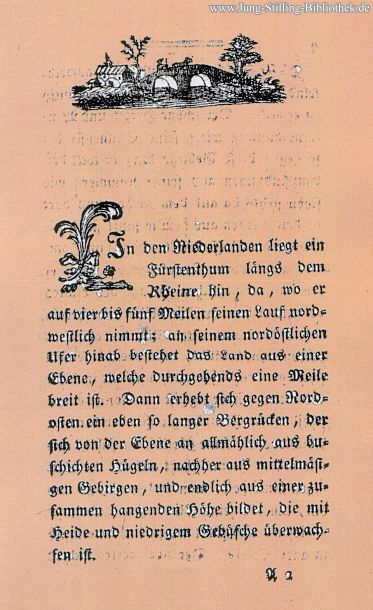 www.Jung-Stilling-Bibliothek.de
In den Niederlanden liegt ein
Fürstenthum längs dem
Rheine hin, da, wo er
auf vier bis fünf Meilen seinen Lauf nord-
westlich nimmt; an seinem nordöstlichen
Ufer hinab bestehet das Land aus einer
Ebene, welche durchgehends eine Meile
breit ist. Dann erhebt sich gegen Nord-
osten ein eben so langer Bergrücken, der
sich von der Ebene an allmählich aus bu-
schichten Hügeln, nachher aus mittelmäsi-
gen Gebirgen, und endlich aus einer zu-
sammen hangenden Höhe bildet, die mit
Heide und niedrigem Gebüsche überwach-
sen ist.
A 2